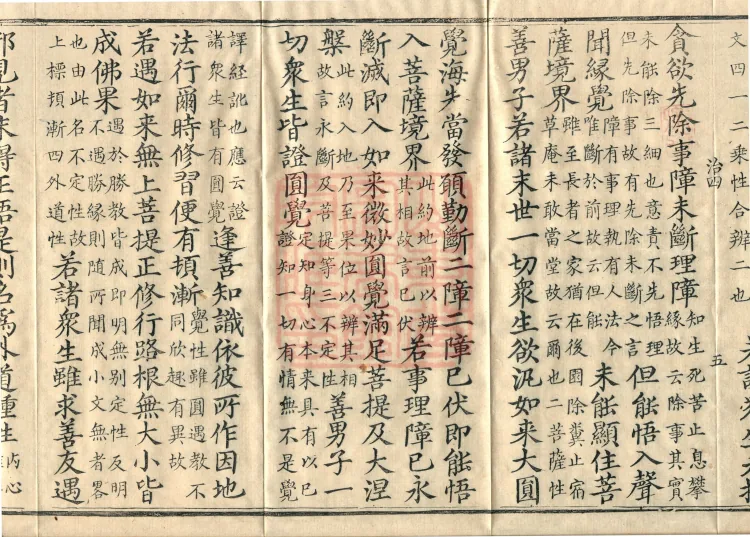 文四一二乘性合辨二也
治四 五
貪欲先除事障未斷理障知生死苦止息攀緣故云除事其實
未能除三細也意責不先悟理但先除事故有先除未斷之言但能悟入聲
聞緣覺障有事理執有人法今唯斷於前故云但能未能顯住菩
薩境界雖至長者之家猶在後園除糞止宿草庵未敢當堂故云爾也二菩薩性
善男子若諸末世一切衆生欲汎如來大圓
覺海先當發願勤斷二障二障已伏即能悟
入菩薩境界此約地前以辨其相故言已伏若事理障已永
斷滅即入如來微妙圓覺滿足菩提及大涅
槃此約入地乃至果位以辨其相故言永斷及菩提等三不定性善男子一
切衆生皆證圓覺定知身心本來具有以已證知一切有情無不是覺
譯經訛也應云證諸衆生皆有圓覺逢善知識依彼所作因地
法行爾時修習便有頓漸覺性雖圓遇教不同欣趣有異故
若遇如來無上菩提正修行路根無大小皆
成佛果遇於勝教皆成即明無別定性反明不遇勝緣則隨所聞成小文無者畧
也由此名不定性故上標頓漸四外道性若諸衆生雖求善友遇
邪見者未得正悟是則名爲外道種性